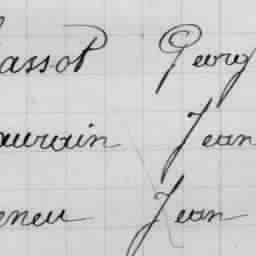 assot Georg
auvrain Jean
eneu Jean